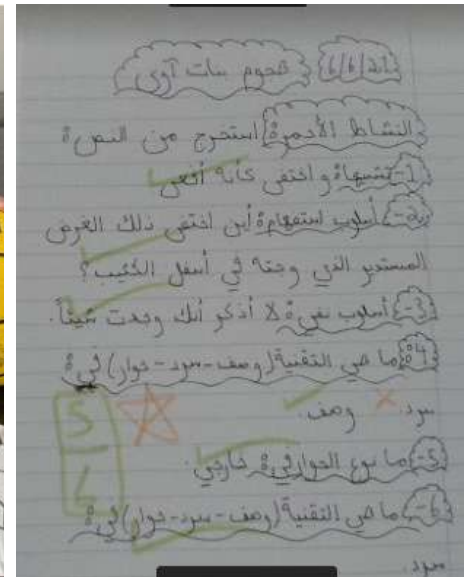 هجوم بنات آوى
النشاط الأحمر: استخرج من النص:
1- تشبيهاً: واختفى كأنه أفعى
2- أسلوب استفهام: أين اختفى ذلك الغرض
المستدير الذي وجدته في أسفل الكثيب؟
3- أسلوب نفي: لا أذكر أنك وجدت شيئاً.
4- ما هي التقنية (وصف-سرد-حوار) في:
سرد. × وصف.
5- ما نوع الحوار في: خارجي.
6- ما هي التقنية (وصف-سرد-حوار) في:
سرد.
5
4